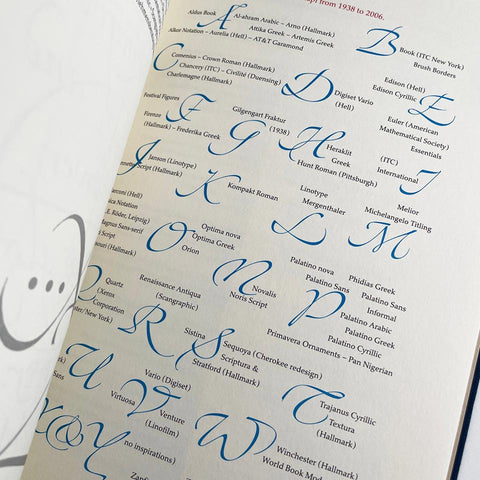 from 1938 to 2006.
Aldus Book
A
Al-ahram Arabic – Arno (Hallmark)
Attika Greek – Artemis Greek
Alkor Notation – Aurelia (Hell) – AT&T Garamond
B
Book (ITC New York)
Brush Borders
C
Comenius – Crown Roman (Hallmark)
Chancery (ITC) – Civilité (Duensing)
Charlemagne (Hallmark)
D
Digiset Vario
(Hell)
Edison (Hell)
Edison Cyrillic
E
Euler (American
Mathematical Society)
Essentials
Festival Figures
F
Firenze
(Hallmark) – Frederika Greek
Gilgengart Fraktur
G
(1938)
H
Heraklit
Greek
Hunt Roman (Pittsburgh)
(ITC)
International
I
J
Janson (Linotype)
Script (Hallmark)
K
Kompakt Roman
Linotype
Mergenthaler
L
Melior
Michelangelo Titling
M
(Hell)
Notation
E. Röder, Leipzig)
Magnus Sans-serif
Script
(Hallmark)
O
Optima nova
Optima Greek
Orion
N
Novalis
Noris Script
Palatino nova
Palatino Sans
P
Phidias Greek
Palatino Sans
Informal
Palatino Arabic
Palatino Greek
Palatino Cyrillic
Primavera Ornaments – Pan Nigerian
Q
Quartz
(Xerox
Corporation
New York)
Renaissance Antiqua
(Scangraphic)
R
Sistina
S
Sequoya (Cherokee redesign)
Scriptura &
Stratford (Hallmark)
T
Trajanus Cyrillic
Textura
(Hallmark)
U
Vario (Digiset)
Virtuosa
V
Venture
(Linofilm)
W
Winchester (Hallmark)
World Book Mod
X&Y
no inspirations)
Zapf